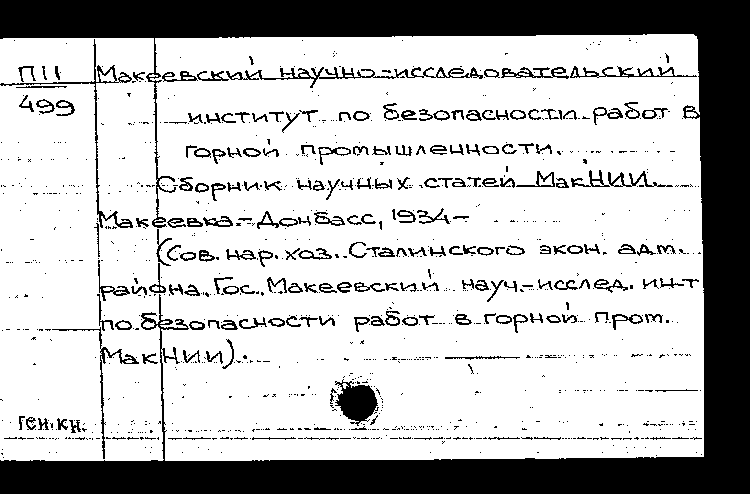 ПII Макеевский научно-исследовательский
499 институт по безопасности работ в
горной промышленности.
Сборник научных статей МакНИИ.
Макеевка.-Донбасс, 1934-
(Сов. нар. хоз. Сталинского экон. адм.
района. Гос. Макеевский науч.-исслед. ин-т
по безопасности работ в горной пром.
МакНИИ).
Ген.кн.